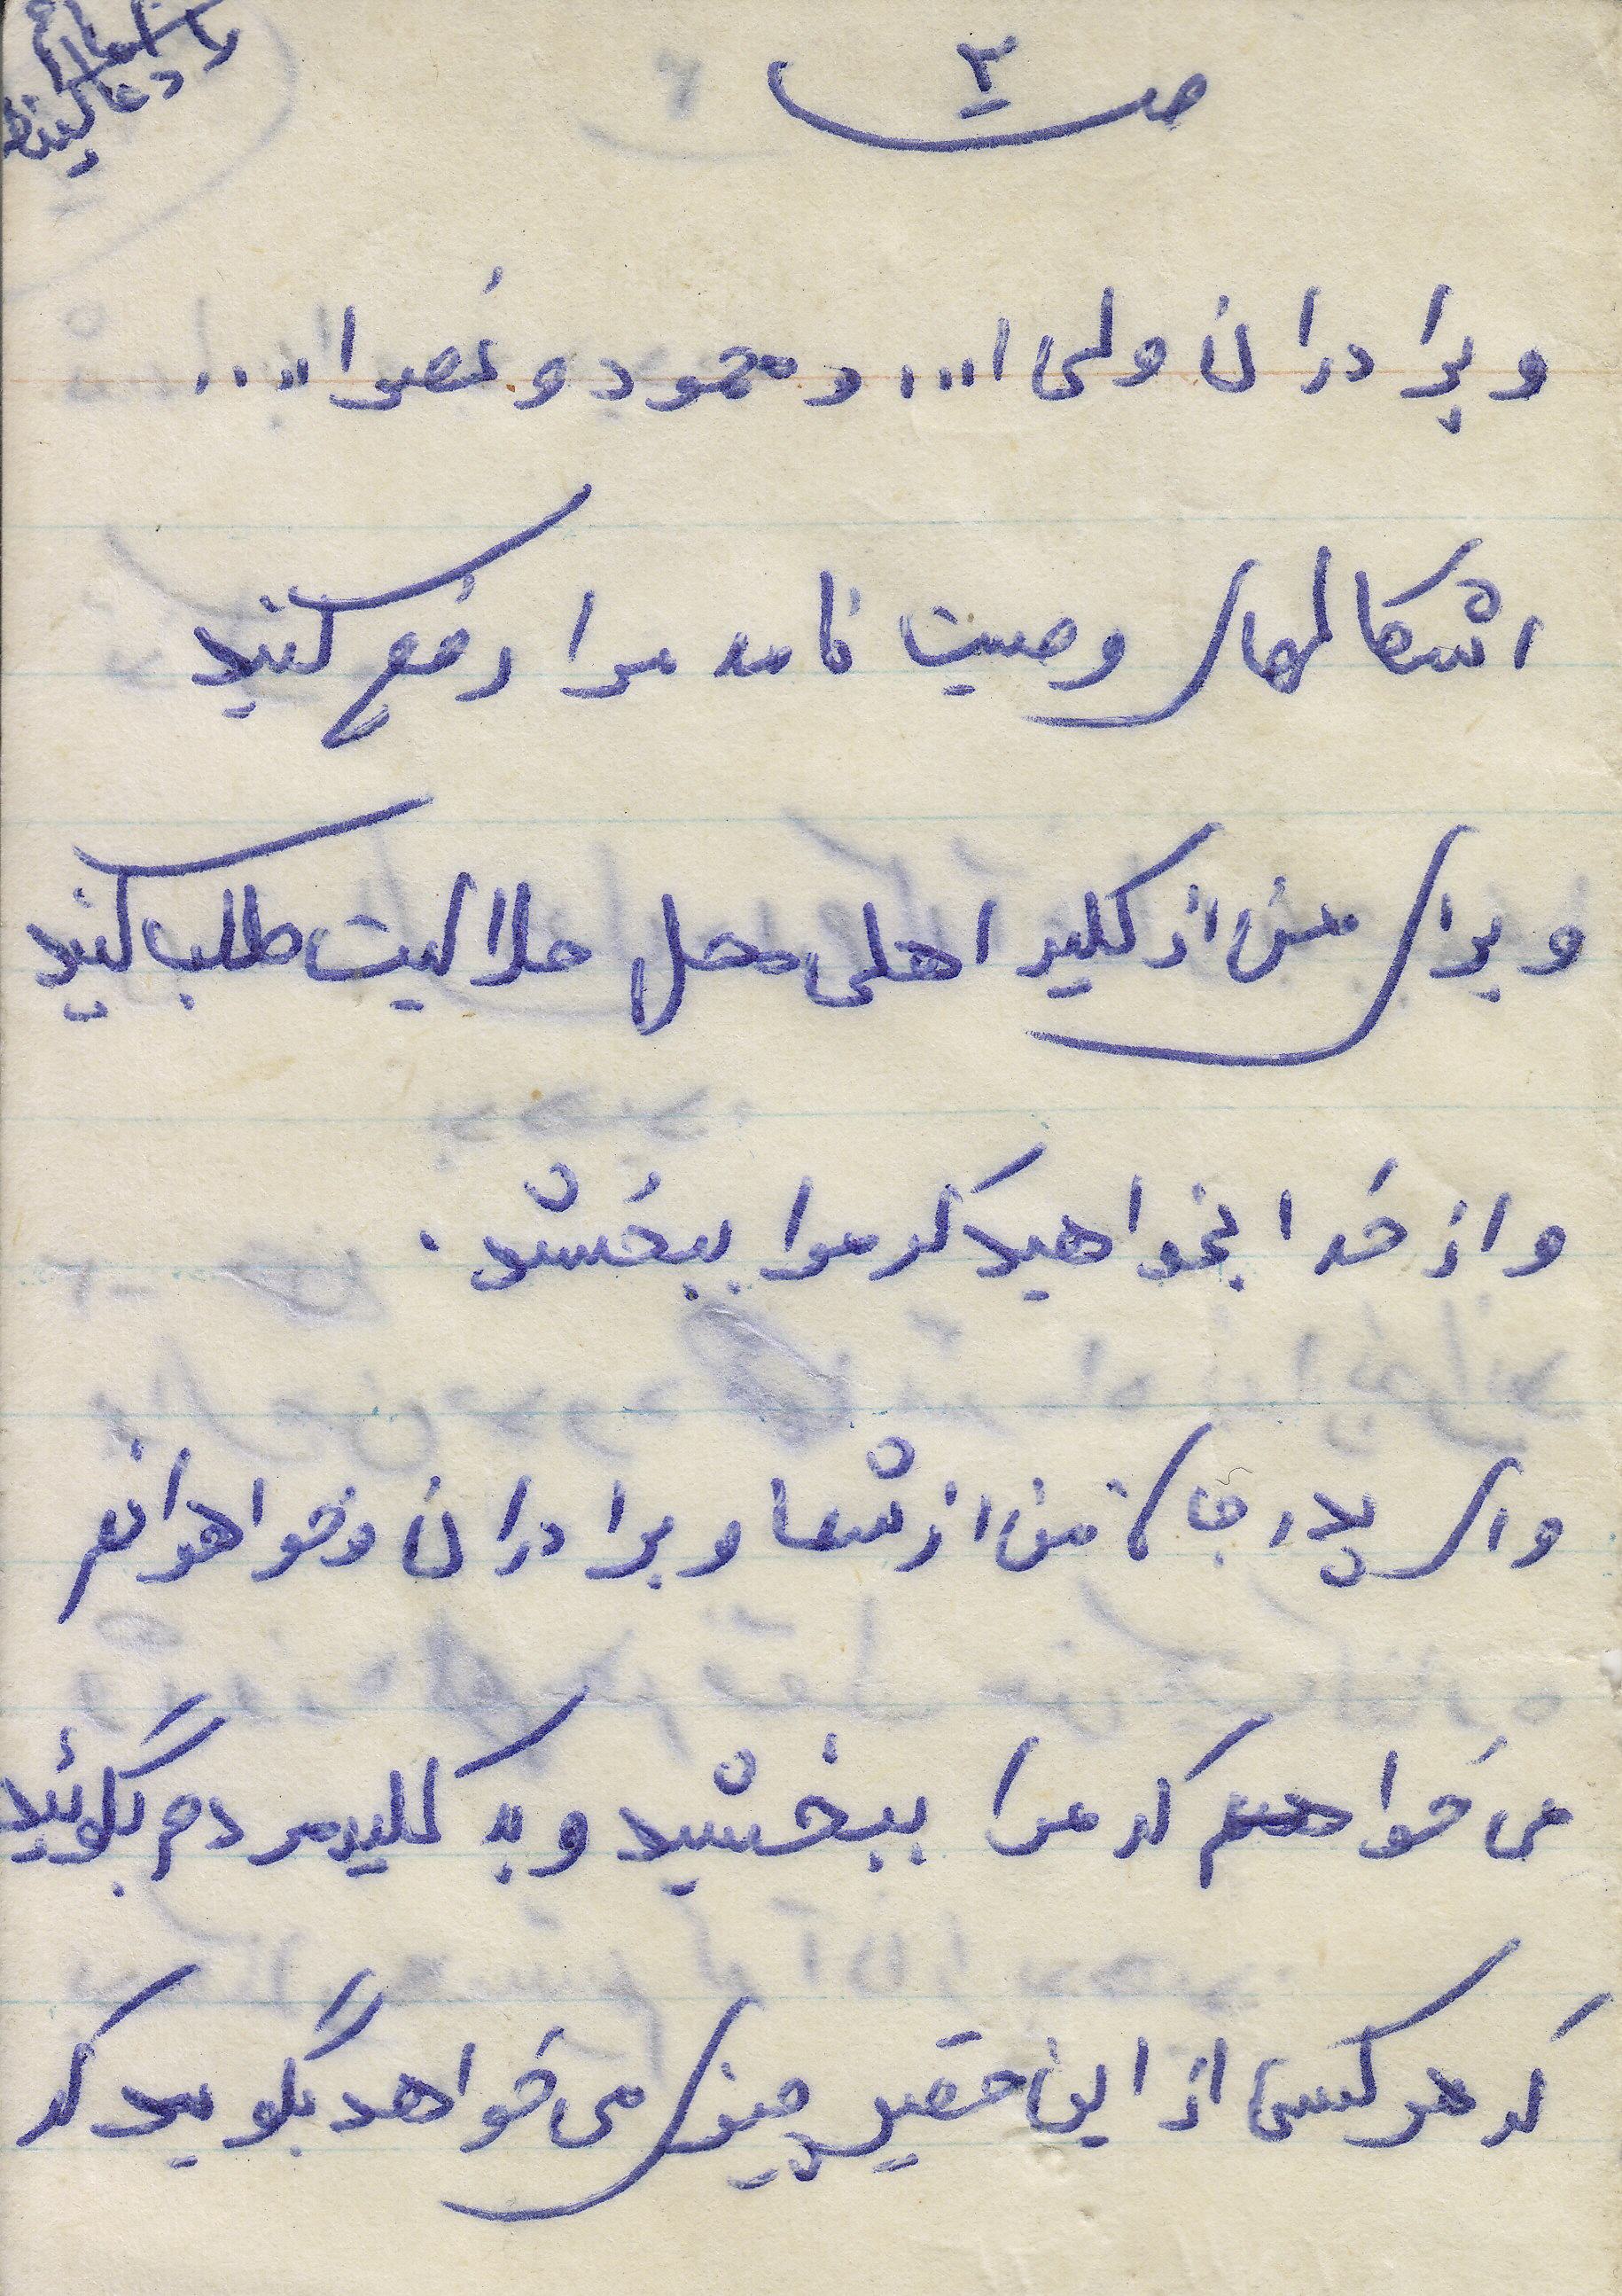 صـ ۳
را
دعا کنید
و برادران ولی ا... و محمود و نصرا...
اشکالهای وصیت نامه مرا رفع کنید
و برای من از کلیه اهلی محل حلالیت طلب کنید
و از خدا بخواهید که مرا ببخشد.
و ای پدر جان من از شما و برادران و خواهرانم
می خواهم که مرا ببخشید و به کلیه مردم بگوئید
که هر کسی از این حقیر چیزی می خواهد بگویید که